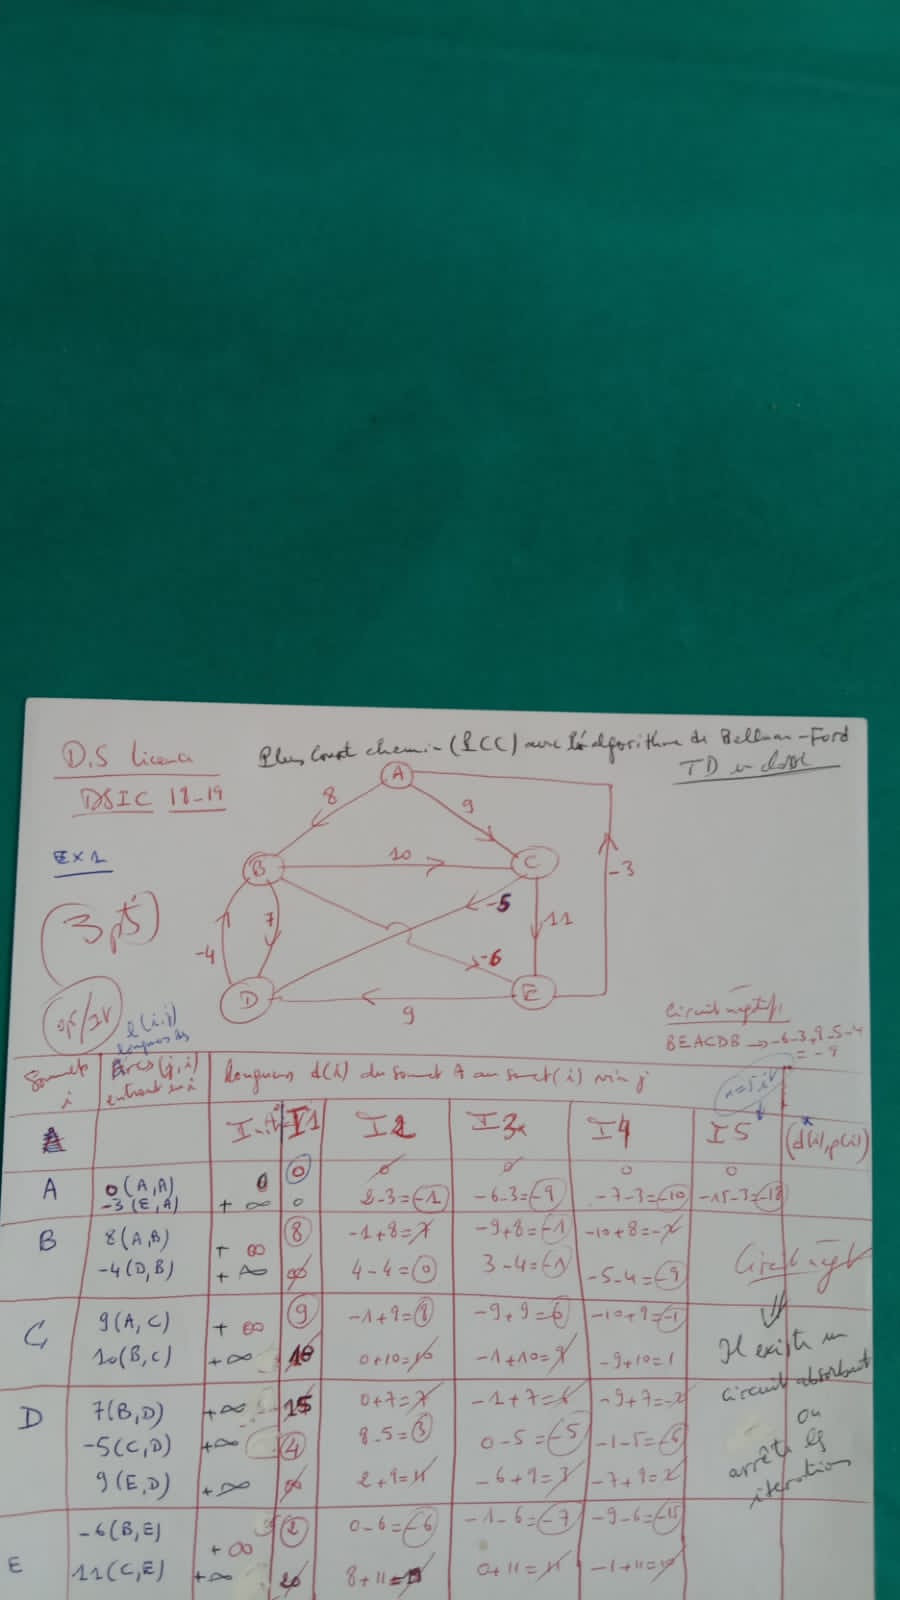 D.S Licence
Plus court chemin (PCC) avec l'algorithme de Bellman-Ford
TD en classe
DSIC 18-19
Ex 1
(3 pts)
A
8
9
B
10
C
-3
-5
11
7
-4
-6
D
E
9
l(i,j)
longueur des
Circuit négatif
BEACDB → -6-3+9-5-4
= -9
Sommets i
arcs (j,i) entrant en i
longueurs d(i) du sommet A au sommet (i) via j
I1
I2
I3
I4
I5
(d(i), p(i))
A
0 (A,A) 0 0 0 0 0 0
-3 (E,A) +∞ 0 2-3=-1 -6-3=-9 -7-3=-10 -15-3=-18
B
8 (A,B) +∞ 8 -1+8=7 -9+8=-1 -10+8=-2
-4 (D,B) +∞ ∞ 4-4=0 3-4=-1 -5-4=-9
Circuit négatif
C
9 (A,C) +∞ 9 -1+9=8 -9+9=0 -10+9=-1
10 (B,C) +∞ 18 0+10=10 -1+10=9 -9+10=1
Il existe un
circuit absorbant
D
7 (B,D) +∞ 15 0+7=7 -1+7=6 -9+7=-2
-5 (C,D) +∞ 4 8-5=3 0-5=-5 -1-5=-6
9 (E,D) +∞ ∞ 2+9=11 -6+9=3 -7+9=2
on
arrête les
itérations
E
-6 (B,E) +∞ 2 0-6=-6 -1-6=-7 -9-6=-15
11 (C,E) +∞ 20 8+11= 0+11=11 -1+11=10